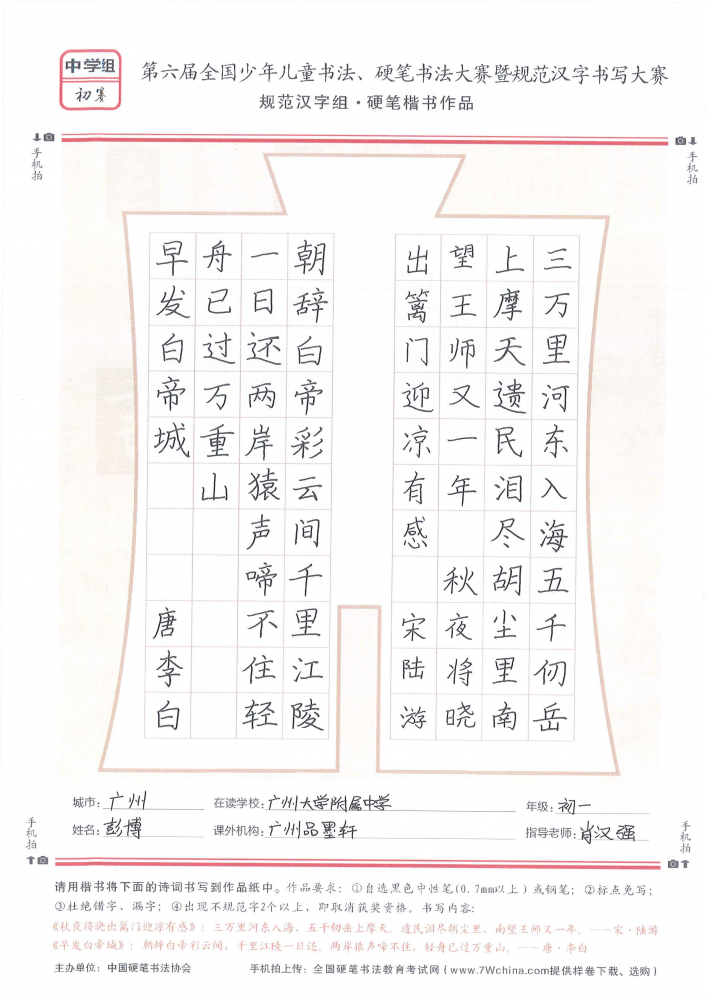 中学组
初赛
第六届全国少年儿童书法、硬笔书法大赛暨规范汉字书写大赛
规范汉字组·硬笔楷书作品
手机拍
手机拍
三万里河东入海五千仞岳
上摩天遗民泪尽胡尘里南
望王师又一年 秋夜将晓
出篱门迎凉有感 宋陆游
朝辞白帝彩云间千里江陵
一日还两岸猿声啼不住轻
舟已过万重山
早发白帝城 唐李白
城市：广州 在读学校：广州大学附属中学 年级：初一
姓名：彭博 课外机构：广州品墨轩 指导老师：肖汉强
手机拍
手机拍
请用楷书将下面的诗词书写到作品纸中。作品要求：①自选黑色中性笔(0.7mm以上)或钢笔；②标点免写；
③杜绝错字、漏字；④出现不规范字2个以上，即取消获奖资格。书写内容：
《秋夜将晓出篱门迎凉有感》：三万里河东入海，五千仞岳上摩天。遗民泪尽胡尘里，南望王师又一年。——宋·陆游
《早发白帝城》：朝辞白帝彩云间，千里江陵一日还。两岸猿声啼不住，轻舟已过万重山。——唐·李白
主办单位：中国硬笔书法协会 手机拍上传：全国硬笔书法教育考试网(www.7Wchina.com提供样卷下载、选购)